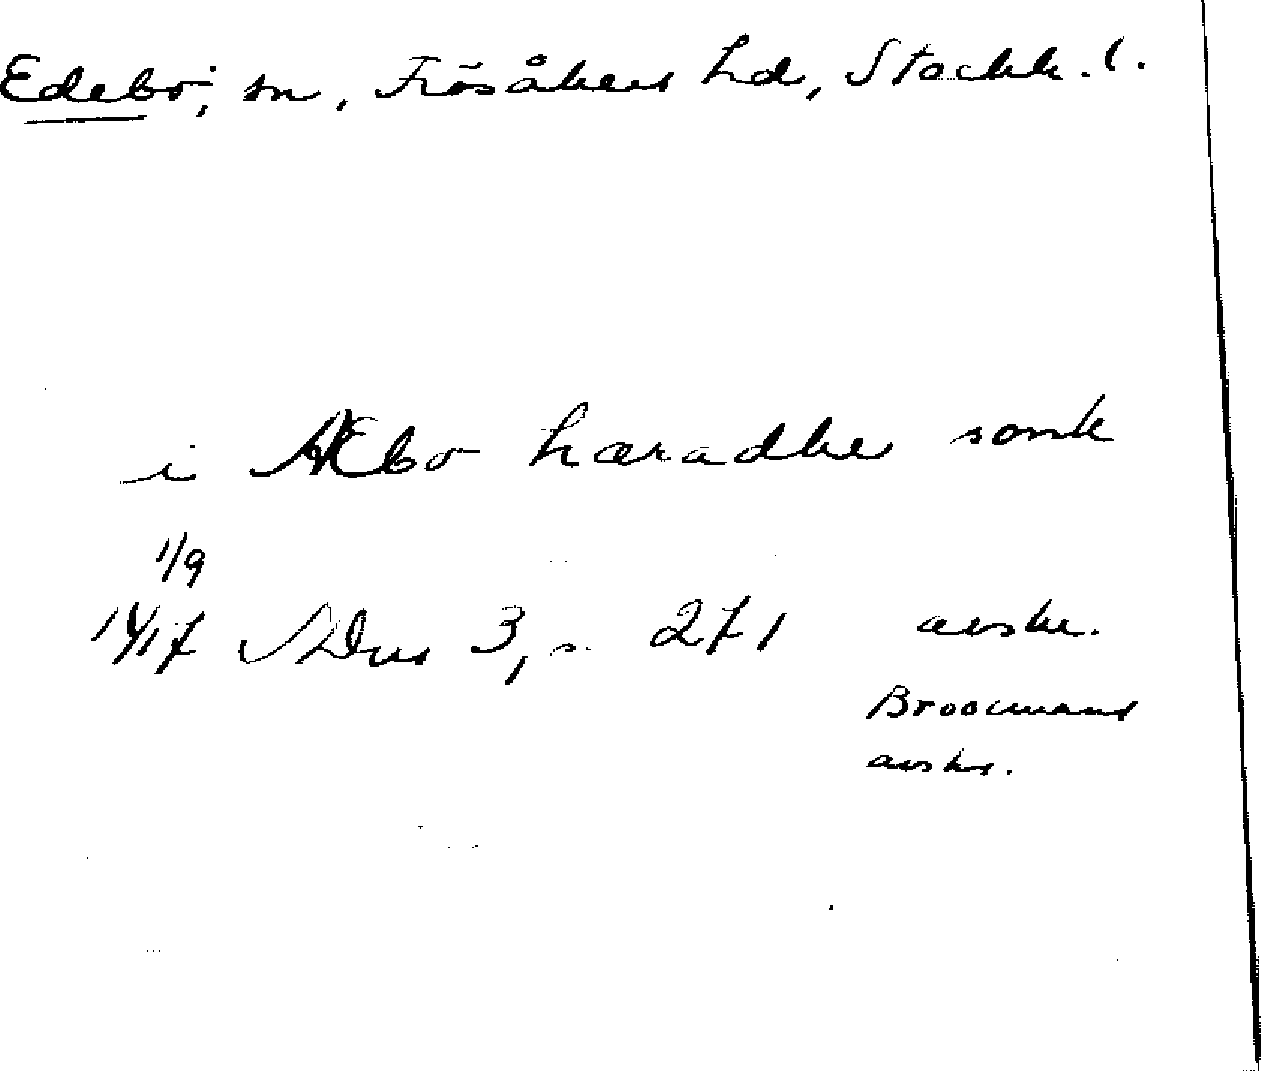 Edebo, sn, Frösåkers hd, Stockh. l.
i Æbo hæradhe sonk
1/9
1417 SDns 3, s. 271 avskr.
Broocmans
avskr.